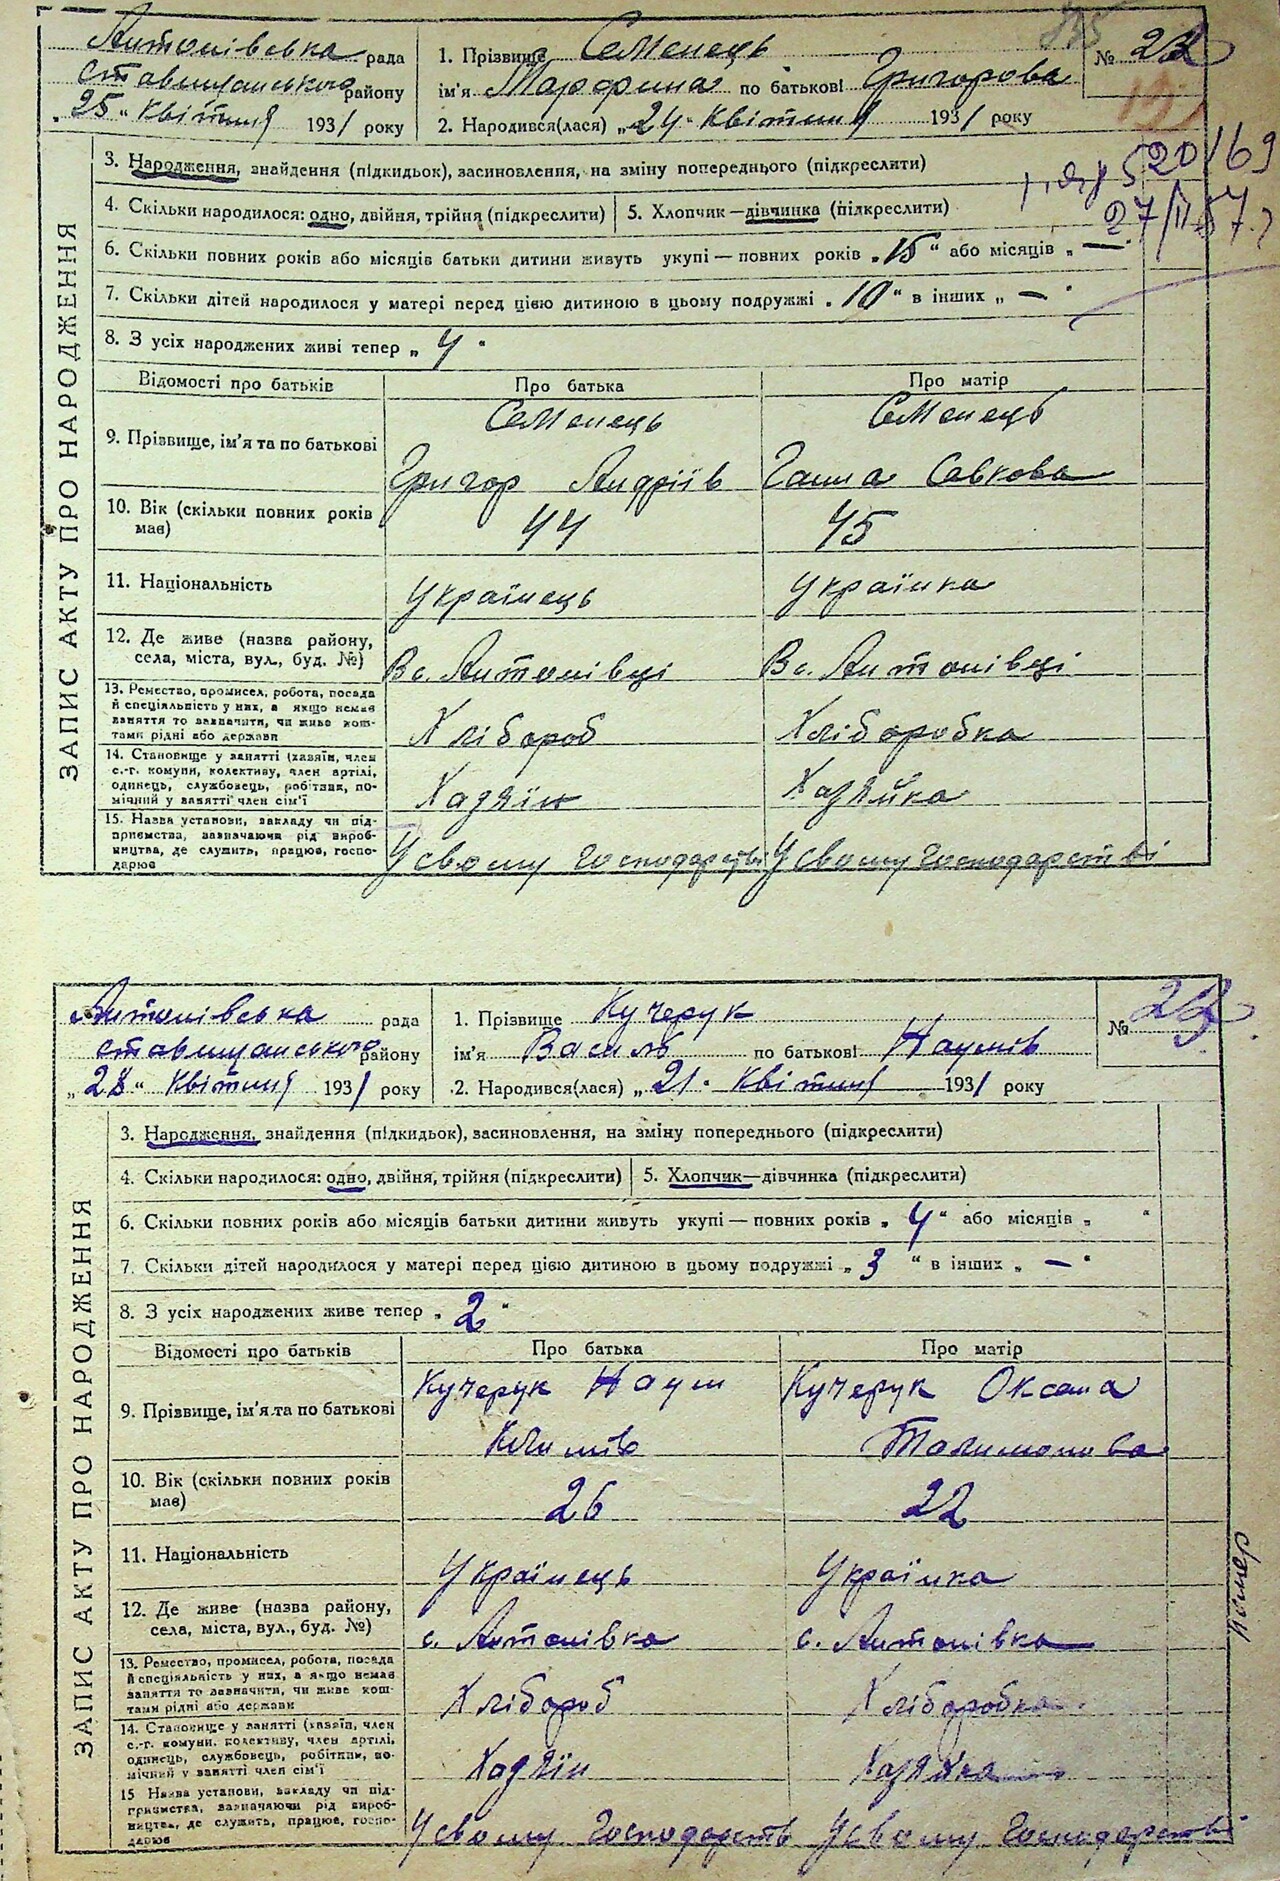 Антонівська рада
Ставищанського району
„25“ Квітня 1931 року
1. Прізвище Семенець
ім'я Марфина по батькові Григорова
2. Народився(лася) „24“ Квітня 1931 року
№ 22
520/69
27/II 57
ЗАПИС АКТУ ПРО НАРОДЖЕННЯ
3. Народження, знайдення (підкидьок), засиновлення, на зміну попереднього (підкреслити)
4. Скільки народилося: одно, двійня, трійня (підкреслити) 5. Хлопчик—дівчинка (підкреслити)
6. Скільки повних років або місяців батьки дитини живуть укупі — повних років „15“ або місяців „—“
7. Скільки дітей народилося у матері перед цією дитиною в цьому подружжі „10“ в інших „—“
8. З усіх народжених живі тепер „4“
Відомості про батьків Про батька Про матір
9. Прізвище, ім'я та по батькові
Семенець Семенець
Григор Андріїв Ганна Савкова
10. Вік (скільки повних років
має)
44 45
11. Національність Українець Українка
12. Де живе (назва району,
села, міста, вул., буд. №) В с. Антонівці В с. Антонівці
13. Ремество, промисел, робота, посада
й спеціяльність у них, а якщо немає
заняття то зазначити, чи живе кош-
тами рідні або держави
Хлібороб Хліборобка
14. Становище у занятті (хазяїн, член
с.-г. комуни, колективу, член артілі,
одинець, службовець, робітник, по-
мічний у занятті член сім'ї
Хазяїн Хазяйка
15. Назва установи, закладу чи під-
приємства, зазначаючи рід вироб-
ництва, де служить, працює, госпо-
дарює
У свому господарстві У свому господарстві
Антонівська рада
Ставищанського району
„28“ Квітня 1931 року
1. Прізвище Кучерук
ім'я Василь по батькові Наумів
2. Народився(лася) „21“ Квітня 1931 року
№ 23
ЗАПИС АКТУ ПРО НАРОДЖЕННЯ
3. Народження, знайдення (підкидьок), засиновлення, на зміну попереднього (підкреслити)
4. Скільки народилося: одно, двійня, трійня (підкреслити) 5. Хлопчик—дівчинка (підкреслити)
6. Скільки повних років або місяців батьки дитини живуть укупі — повних років „4“ або місяців „ “
7. Скільки дітей народилося у матері перед цією дитиною в цьому подружжі „3“ в інших „—“
8. З усіх народжених живе тепер „2“
Відомості про батьків Про батька Про матір
9. Прізвище, ім'я та по батькові
Кучерук Наум Кучерук Оксана
Климів Талимонова
10. Вік (скільки повних років
має)
26 22
11. Національність Українець Українка
12. Де живе (назва району,
села, міста, вул., буд. №) с. Антонівка с. Антонівка
13. Ремество, промисел, робота, посада
й спеціяльність у них, а якщо немає
заняття то зазначити, чи живе кош-
тами рідні або держави
Хлібороб Хліборобка
14. Становище у занятті (хазяїн, член
с.-г. комуни, колективу, член артілі,
одинець, службовець, робітник, по-
мічний у занятті член сім'ї
Хазяїн Хазяйка
15 Назва установи, закладу чи під-
приємства, зазначаючи рід вироб-
ництва, де служить, працює, госпо-
дарює
У свому господарстві У свому господарстві
помер